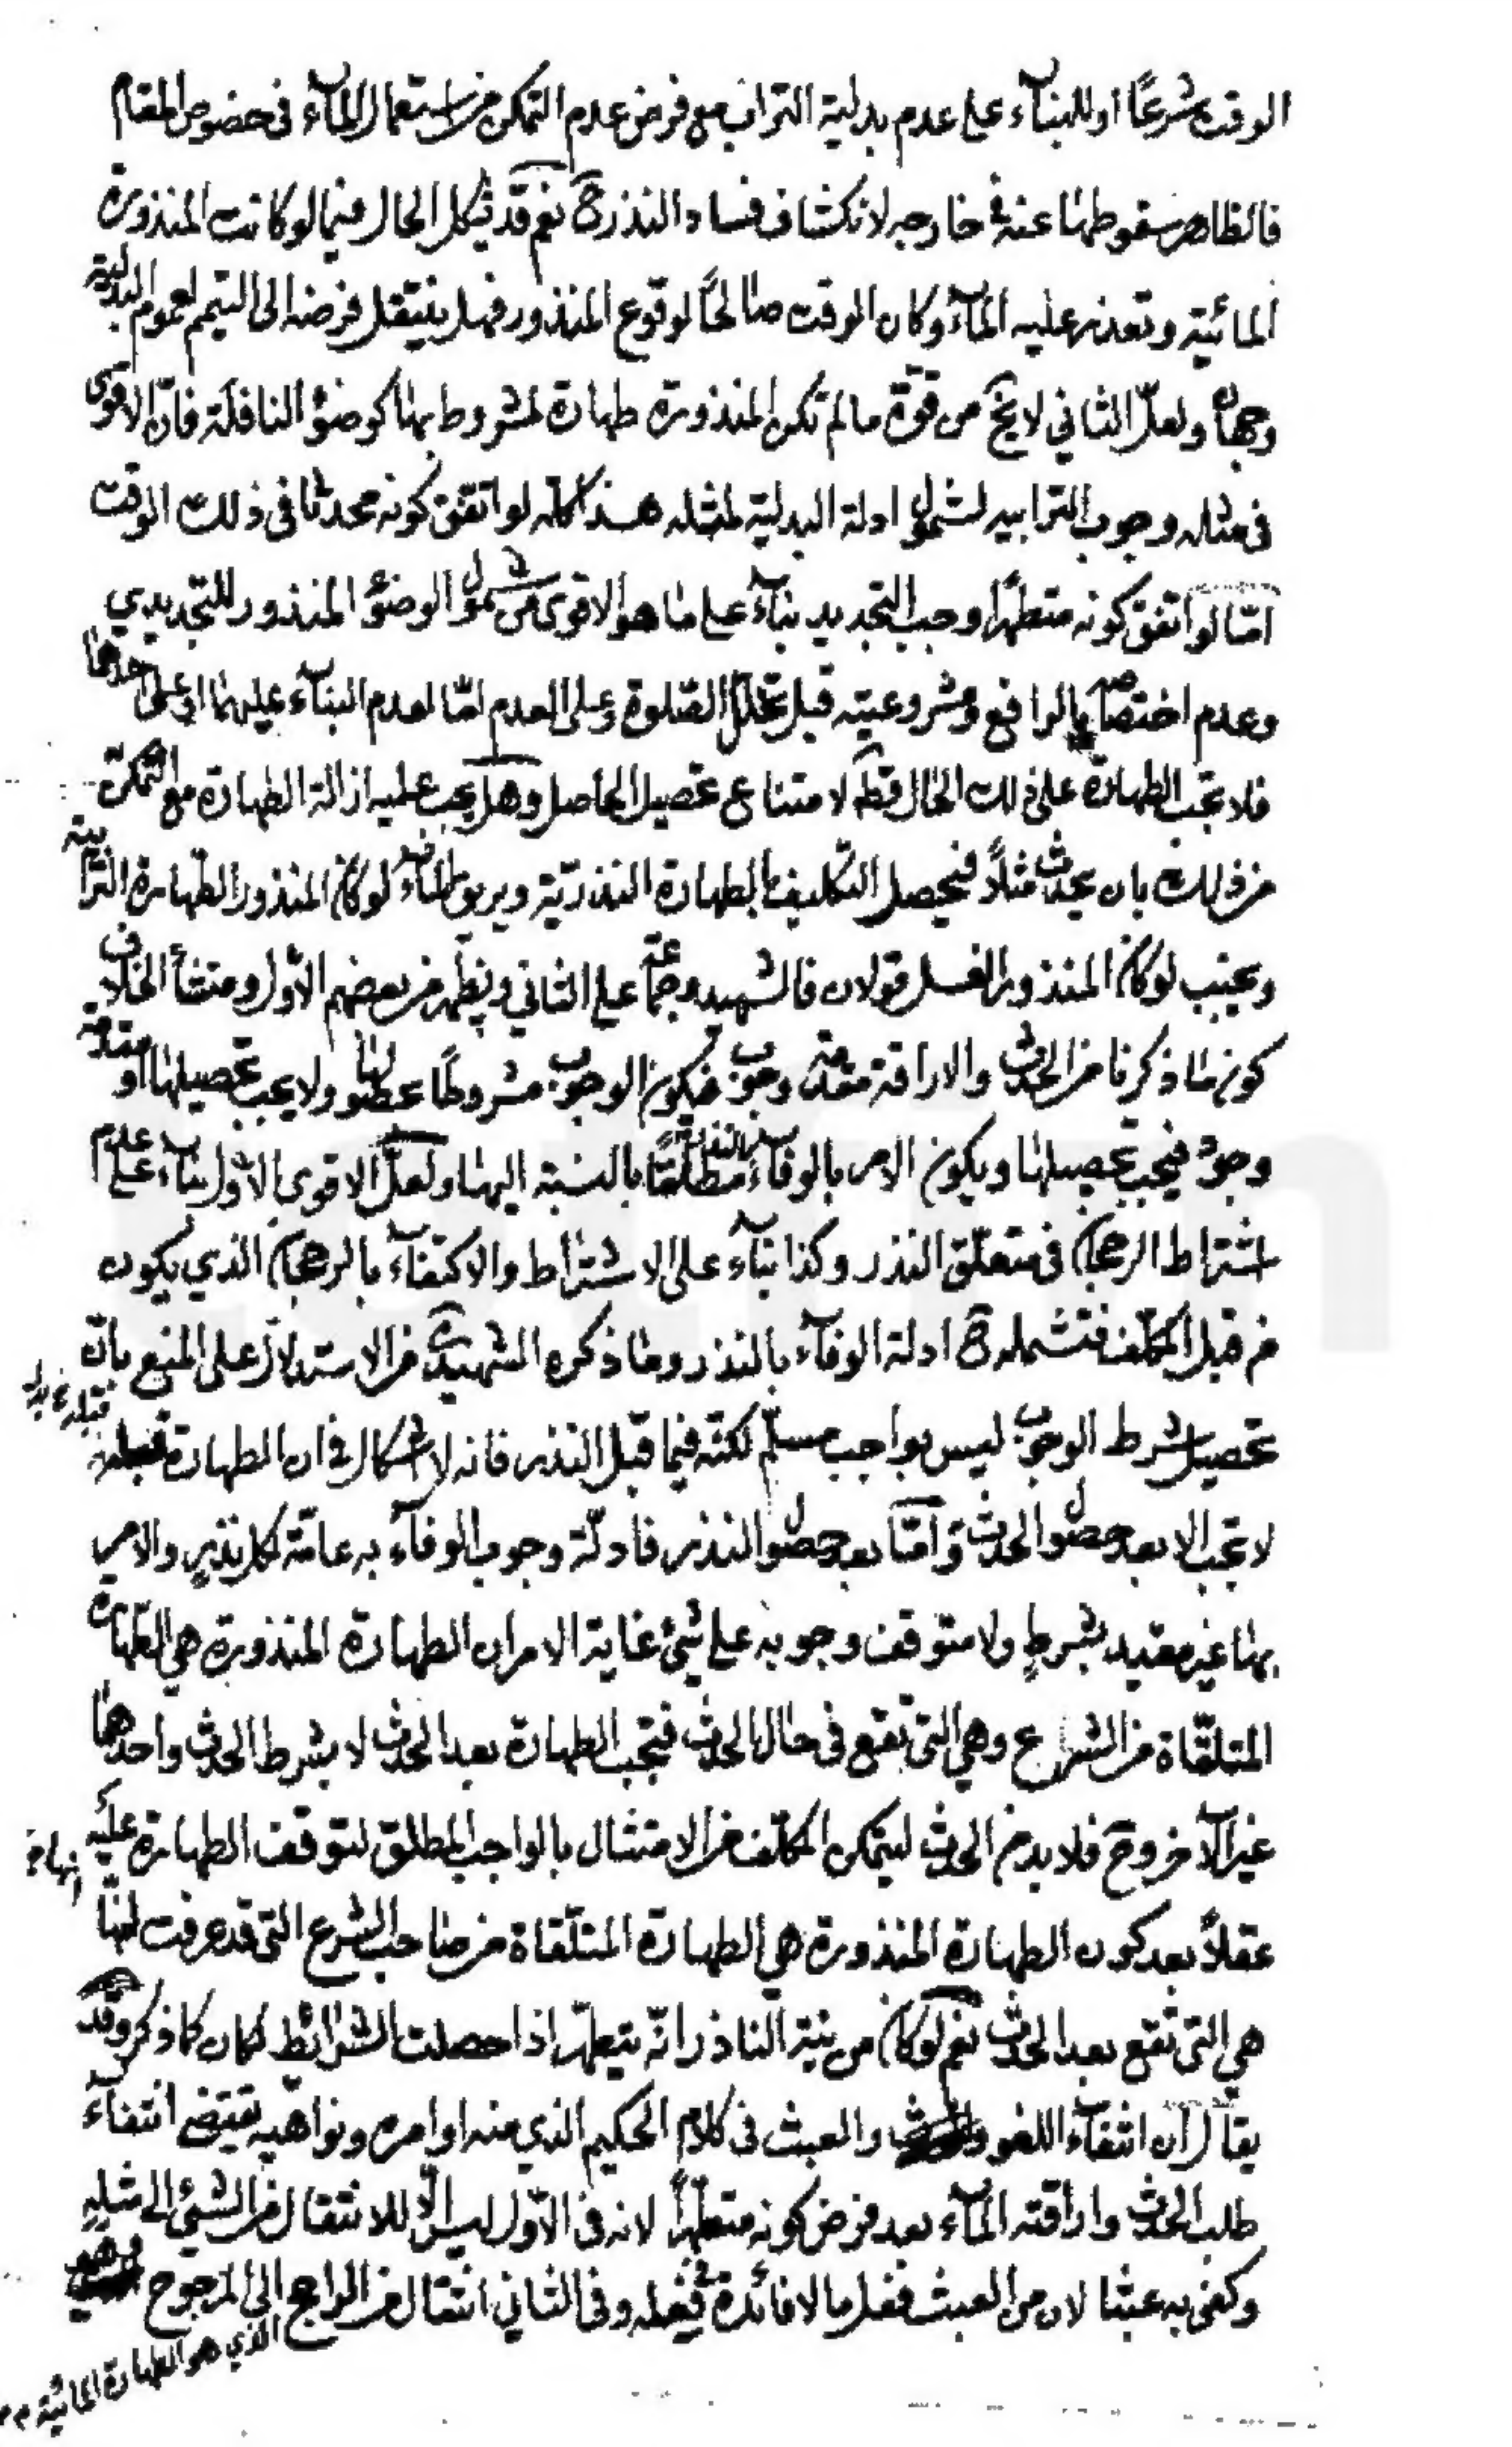 الوقت شرعًا او للبناء على عدم بدلية التراب مع فرض عدم التمكن من استعمال الماء فى خصوص المقام
فالظاهر سقوطها عنه فى خارجه لانكشاف فساد النذر ح نعم قد يشكل الحال فيما لو كانت المنذورة
المائية وتعذر عليه الماء وكان الوقت صالحًا لوقوع المنذور فهل ينتقل فرضه الى التيمم لعموم البدلية
وجهان ولعل الثاني لا يخ من قوة ما لم تكن المنذورة طهارة لمشروط بها كوضوء النافلة فان الاقوى
فى مثله وجوب الترابيه لشمول ادلة البدلية لمثله هذا كله لو اتفق كونه محدثا فى ذلك الوقت
امّا لو اتفق كونه متطهرًا وجب التجديد بناءً على ما هو الاقوى من شمول الوضوء المنذور للتجديدي
وعدم اختصاصه بالرافع ومشروعيته قبل تخلل الصّلوة وعلى العدم امّا لعدم البناء عليهما او على احدهما
فلا تجب الطهارة على ذلك الحال قطعًا لامتناع تحصيل الحاصل وهل يجب عليه ازالة الطهارة مع التمكن
من ذلك بان يحدث مثلاً فيحصل التكليف بالطهارة النذريّة ويريق الماء لو كان المنذور الطهارة الترابية
ويجنب لو كان المنذور الغسل قولان فالشهيد وجماعة على الثاني ويظهر من بعضهم الاوّل ومنشأ الخلاف
كون ما ذكرنا من الحدث والاراقة مقدمة وجوب فيكون الوجوب مشروطًا بحصولها ولا يجب تحصيلها او مقدمة
وجود فيجب تحصيلها ويكون الامر بالوفاء بالنذر مطلقًا بالنسبة اليها ولعل الاقوى الاوّل بناء على عدم
اشتراط الرجحان فى متعلّق النذر وكذا بناء على الاشتراط والاكتفاء بالرجحان الذي يكون
من قبل المكلّف فتشمله ح ادلة الوفاء بالنذر وما ذكره الشهيد من الاستدلال على المنع بانّ
تحصيل شرط الوجوب ليس بواجب مسلّم لكنّه فيما قبل النذر فانه لا اشكال فى ان الطهارة قبله
لا تجب الا بعد حصول الحدث وامّا بعد حصول النذر فادلّة وجوب الوفاء به عامّة لكل نذر والامر
بها غير مقيد بشرط ولا متوقف وجوبه على شيئ غاية الامر ان الطهارة المنذورة هي الطهارة
المتلقّاة من الشارع وهي التى تقع فى حال الحدث فتجب الطهارة بعد الحدث لا بشرط الحدث واحدهما
غير الآخر وح فلا بد من الحدث ليتمكن المكلّف من الامتثال بالواجب المطلق لتوقف الطهارة عليه
عقلاً بعد كون الطهارة المنذورة هي الطهارة المتلّقاة من صاحب الشرع التى قد عرفت انها
هي التى تقع بعد الحدث نعم لو كان من نية الناذر انّه يتطهّر اذا حصلت الشرائط لكان كما ذكر وقد
يقال ان انتفاء اللغو والعبث فى كلام الحكيم الذي منه اوامره ونواهيه يقتضى انتفاء
طلب الحدث واراقته الماء بعد فرض كونه متطهّرًا لانه فى الاوّل ليس الّا للانتقال من الشئ الى مثله
وكفى به عبثا لان من العبث فعل ما لا فائدة فى فعله وفى الثاني انتقال من الراجح الى المرجوح
الذي هو الطهارة المائية